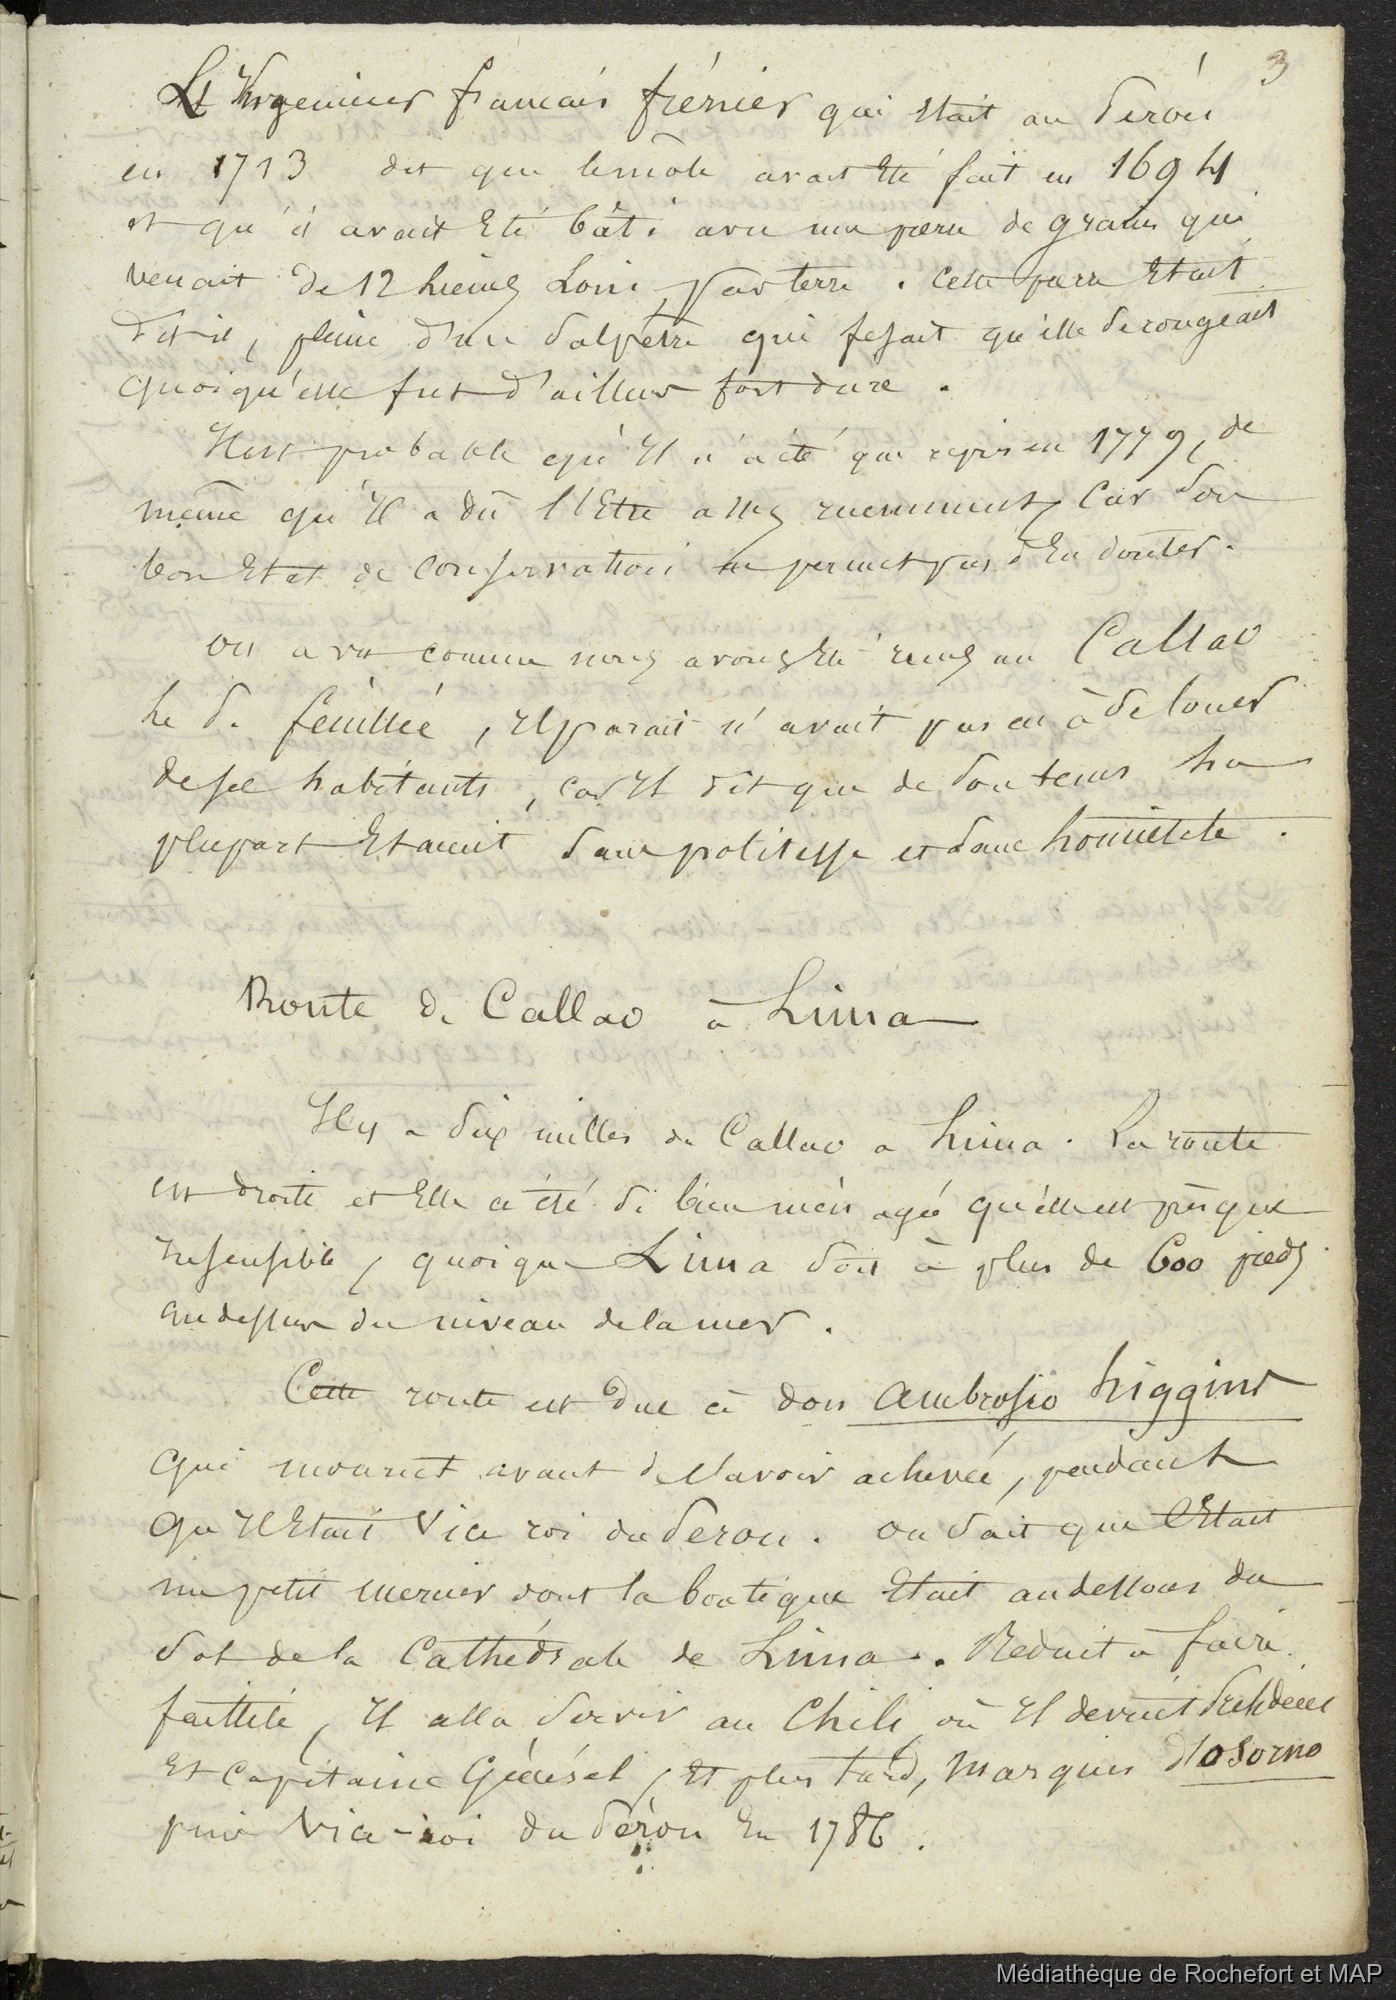 3
L'Ingenieur francais frésier qui Etait au Pérou
en 1713 dit que le môle avait Eté fait en 1694
et qu'il avait Eté bâti avec une pierre de grains qui
venait de 12 lieues Loin par terre. Cette pierre Etait
dit-il, pleine d'un Salpetre qui fesait qu'elle se rongeait
quoiqu'elle fut d'ailleurs fort dure.
Il est probable qu'Il n'a été que repris en 1779, de
même qu'Il a dû l'Etre assez recemment, Car Son
bon Etat de Conservation ne permet pas d'En douter.
on a vu comme nous avons Eté reçus au Callao
Le P. feuillée, Il parait n'avait pas eu à Se louer
de ses habitants, car Il dit que de Son tems La
plupart Etaient Sans politesse et Sans honnêteté.
Route de Callao à Lima
Il y a Six milles de Callao a Lima. La route
est droite et Elle a été Si bien ménagée qu'elle est presque
insensible, quoique Lima Soit à plus de 600 pieds
au dessus du niveau de la mer.
Cette route est due à don Ambrosio higgins
qui mourut avant de l'avoir achevée, pendant
qu'Il Etait Vice roi du Perou. on Sait que C'Etait
un petit mercier dont la boutique Etait au dessous du
Sol de la Cathédrale de Lima. Reduit à faire
faillite, Il alla Servir au Chili où Il devint Président
Et Capitaine Général, Et plus tard, Marquis d'Osorno
puis Vice-roi du Pérou En 1786.
Médiathèque de Rochefort et MAP